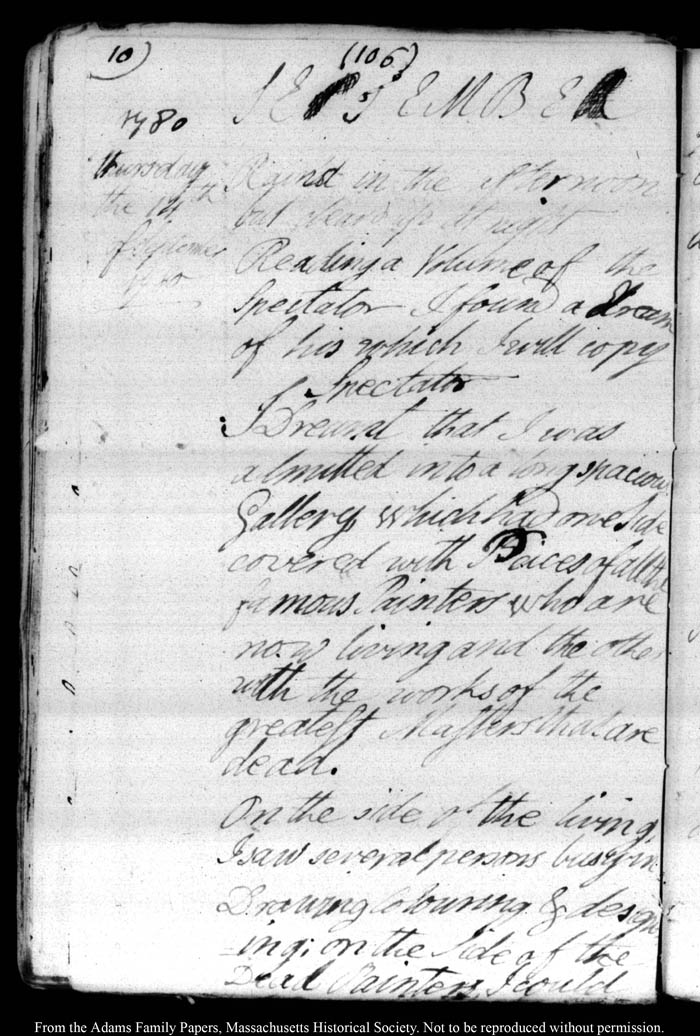 10)
(106)
SEPTEMBER
1780
Thursday
the 14th
of September
1780
Rain'd in the afternoon
but clear'd up at night
Reading a Volume of the
Spectator I found a Dream
of his which I will copy
Spectator
I Dreamt that I was
admitted into a long spacious
Gallery, which had one Side
covered with Peices of all the
famous Painters who are
now living and the other
with the works of the
greatest Masters that are
dead.
On the side of the living,
I saw several persons busy in
Drawing Colouring & design
-ing; on the Side of the
Dead Painters, I could
From the Adams Family Papers, Massachusetts Historical Society. Not to be reproduced without permission.